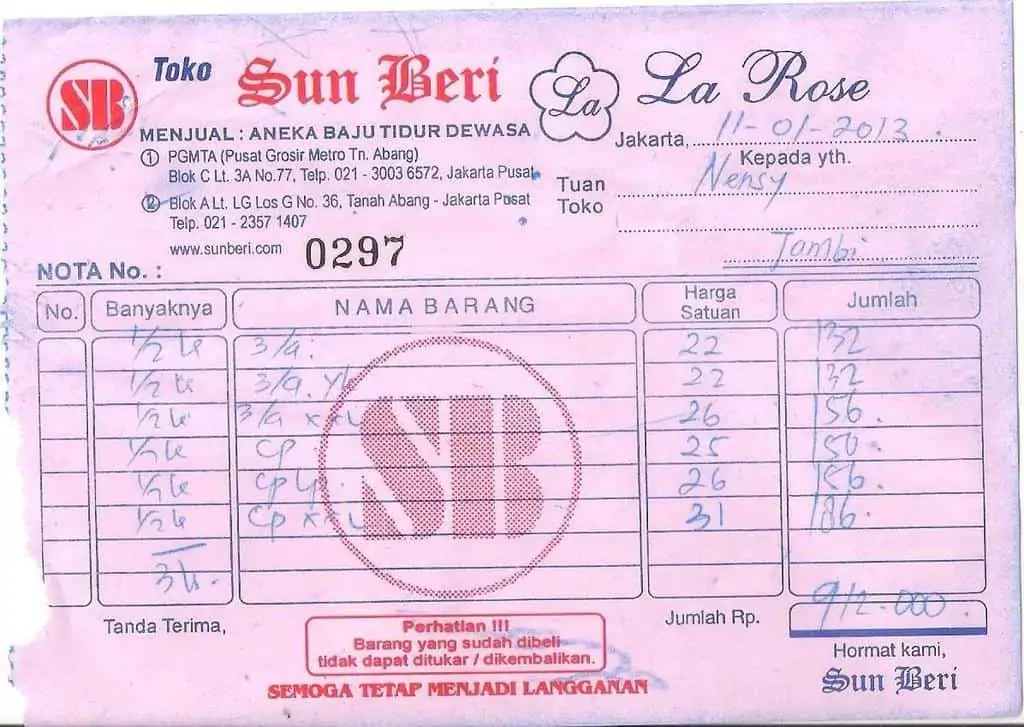 SB Toko Sun Beri La La Rose
MENJUAL : ANEKA BAJU TIDUR DEWASA
Jakarta, 11-01-2013
① PGMTA (Pusat Grosir Metro Tn. Abang)
Kepada yth.
Blok C Lt. 3A No.77, Telp. 021 - 3003 6572, Jakarta Pusat
Tuan Nensy
Toko
② Blok A Lt. LG Los G No. 36, Tanah Abang - Jakarta Pusat
Telp. 021 - 2357 1407
www.sunberi.com
Jambi
NOTA No. : 0297
No. Banyaknya NAMA BARANG Harga Satuan Jumlah
1/2 3/a. 22 132
1/2 3/a. 22 132
1/2 3/a 26 156.
1/2 Cp 25 150.
1/2 Cp 26 156.
1/2 Cp 31 186.
SB
3
Jumlah Rp. 912.000
Tanda Terima,
Perhatian !!!
Barang yang sudah dibeli
tidak dapat ditukar / dikembalikan.
SEMOGA TETAP MENJADI LANGGANAN
Hormat kami,
Sun Beri